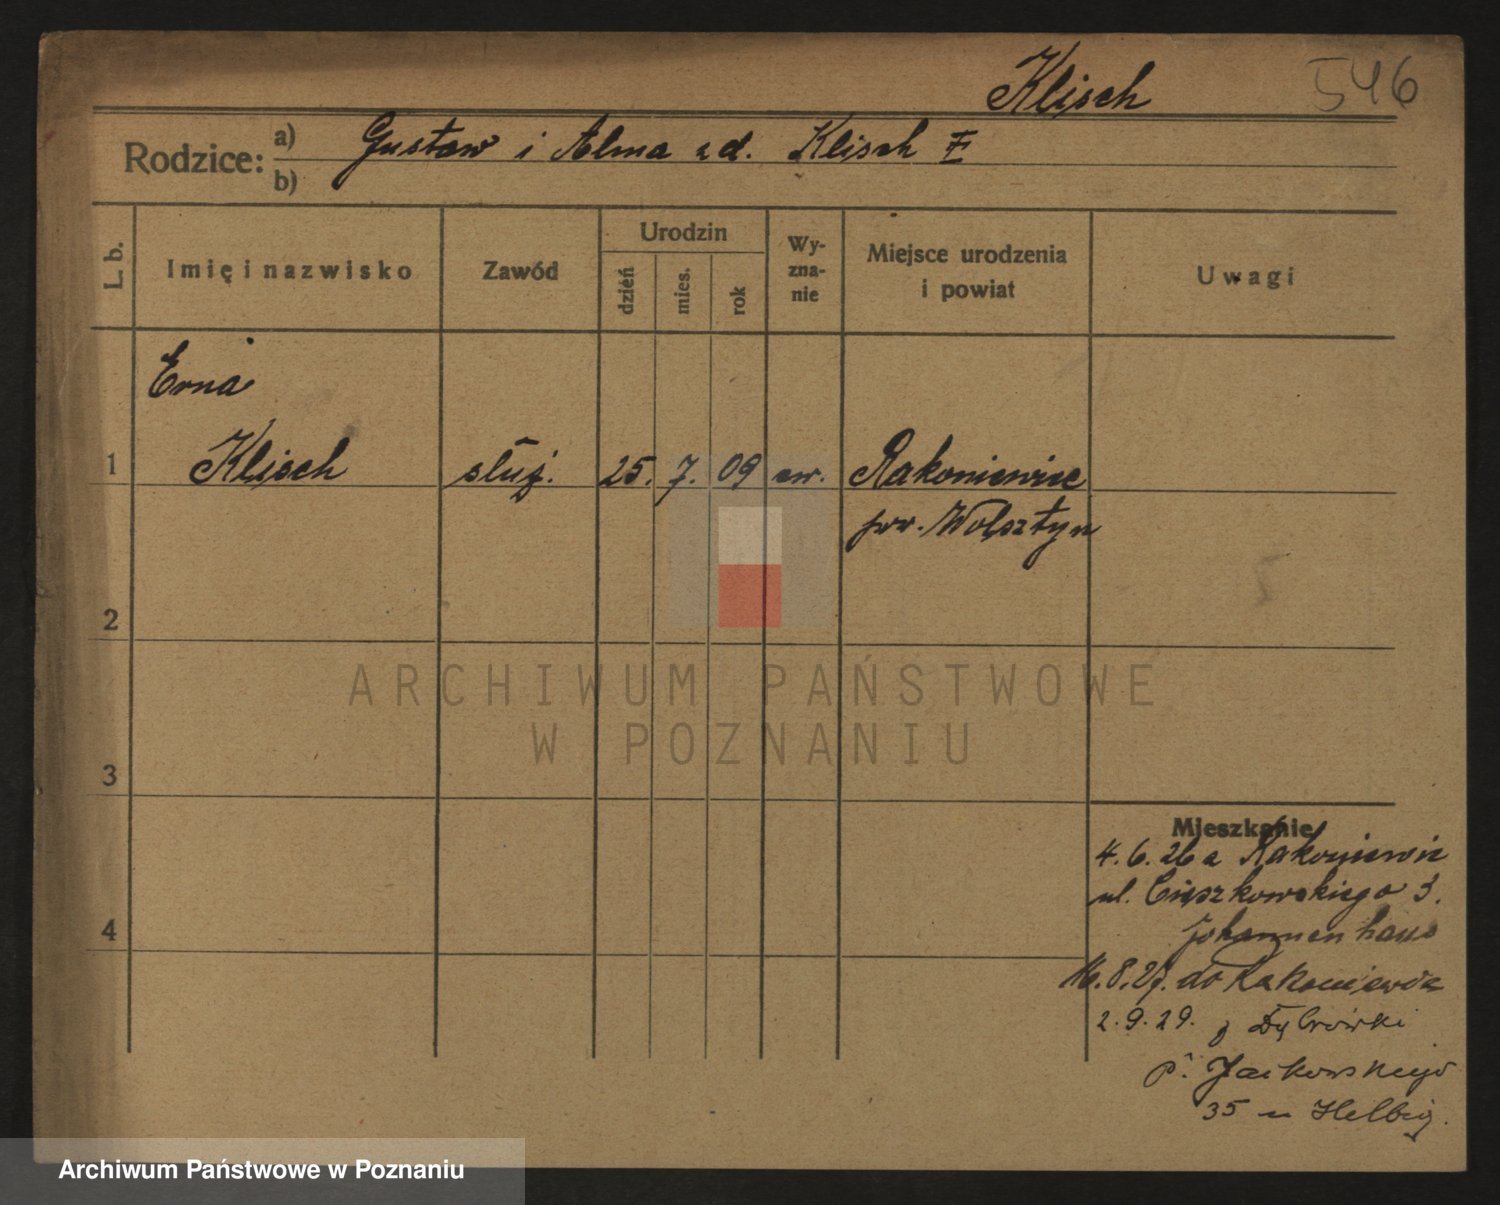 Klisch 546
Rodzice: a) Gustaw i Alma zd. Klisch
b)
L. b. Imię i nazwisko Zawód Urodzin dzień mies. rok Wyznanie Miejsce urodzenia i powiat Uwagi
Erna
1 Klisch służ. 25. 7. 09 ew. Rakoniewice
pow. Wolsztyn
2
ARCHIWUM PAŃSTWOWE
W POZNANIU
3
Mieszkanie
4.6.26 z Rakoniewic
ul. Cieszkowskiego 3.
4 Johannenhaus
16.8.27. do Rakoniewic
2.9.29. z Dąbrówki
p. 
35 u Helbig.
Archiwum Państwowe w Poznaniu